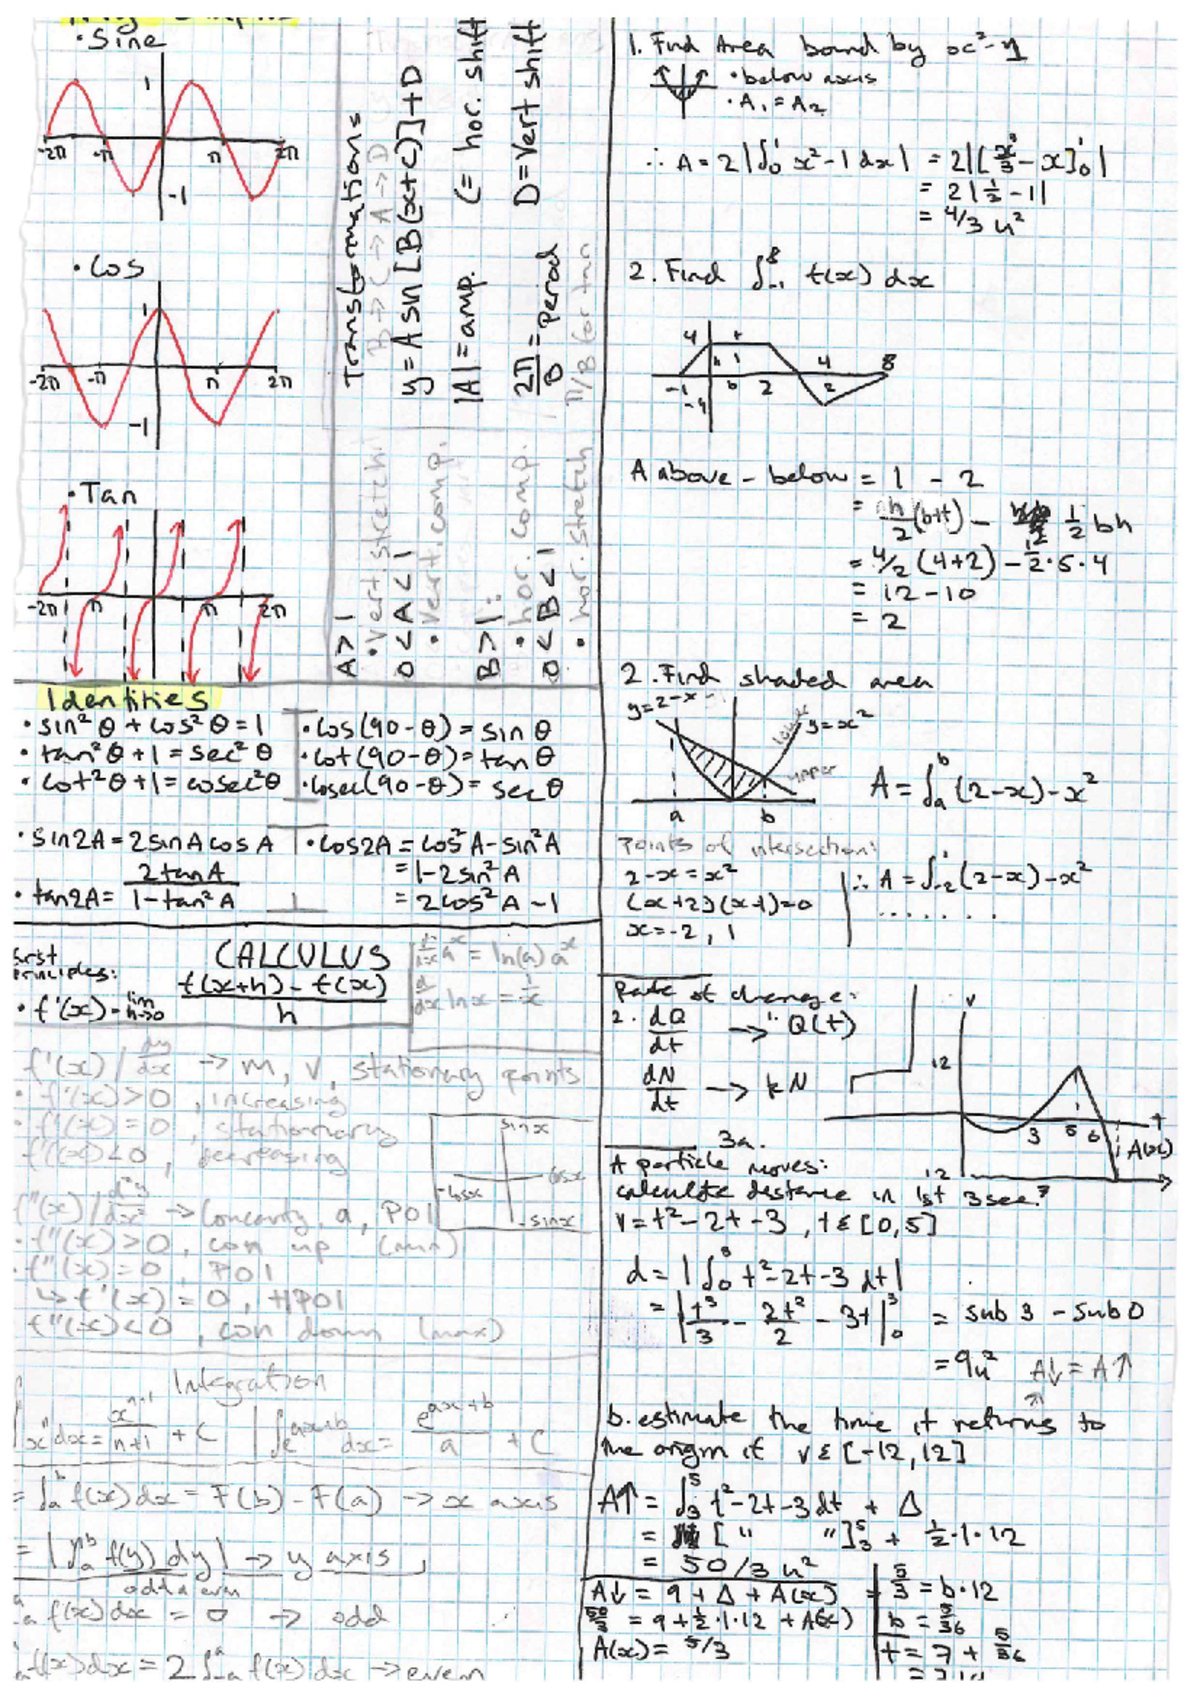 • Sine
1
-2π
-π
π
2π
-1
• Cos
1
-2π
-π
π
2π
-1
• Tan
-2π
π
π
2π
Transformations
B → C → A → D
y = A sin [B(x+c)] + D
|A| = amp.
C = hor. shift
2π/B = period
D = Vert shift
π/B for tan
A > 1
• vert. stretch
0 < A < 1
• vert. comp.
B > 1:
• hor. comp.
0 < B < 1
• hor. stretch
Identities
• sin²θ + cos²θ = 1
• tan²θ + 1 = sec²θ
• cot²θ + 1 = cosec²θ
• cos(90-θ) = sin θ
• cot(90-θ) = tan θ
• cosec(90-θ) = sec θ
• sin2A = 2sinA cosA
• tan2A = 2tanA / 1-tan²A
• cos2A = cos²A - sin²A
= 1-2sin²A
= 2cos²A - 1
CALCULUS
first
principles:
• f'(x) = lim h→0 f(x+h) - f(x) / h
d/dx aˣ = ln(a) aˣ
d/dx ln x = 1/x
f'(x) / dy/dx → m, v, stationary points
• f'(x) > 0, increasing
• f'(x) = 0, stationary
f'(x) < 0, decreasing
sinx
-cosx
cosx
-sinx
f''(x) / d²y/dx² → Concavity, a, POI
• f''(x) > 0, con up (min)
• f''(x) = 0, POI
↳ f'(x) = 0, HPOI
f''(x) < 0, con down (max)
Integration
∫xⁿ dx = xⁿ⁺¹/n+1 + C
∫e^ax+b dx = e^ax+b / a + C
= ∫ₐᵇ f(x) dx = F(b) - F(a) → x axis
= |∫ₐᵇ f(y) dy| → y axis
odd a even
f(x) dx = 0 → odd
f(x) dx = 2 ∫₋ₐ f(x) dx → even
1. Find Area bound by x²-1
• below axis
• A₁ = A₂
∴ A = 2|∫₀¹ x²-1 dx| = 2|[x³/3 - x]₀¹|
= 2|1/3 - 1|
= 4/3 u²
2. Find ∫₋₁⁸ f(x) dx
4
t
h
1
4
8
-1
b
2
2
-4
A above - below = 1 - 2
= h/2 (b+t) - 1/2 bh
= 4/2 (4+2) - 1/2 · 5 · 4
= 12 - 10
= 2
2. Find shaded area
y=2-x
y=x²
lower
upper
a
b
A = ∫ₐᵇ (2-x) - x²
points of intersection:
2-x = x²
(x+2)(x-1) = 0
x = -2, 1
∴ A = ∫₋₂¹ (2-x) - x²
.......
Rate of change:
2. dQ/dt → Q(t)
dN/dt → kN
v
12
3
5
6
t
A(x)
12
3a.
A particle moves:
calculate distance in 1st 3sec?
v = t²-2t-3, t ε [0,5]
d = |∫₀³ t²-2t-3 dt|
= |t³/3 - 2t²/2 - 3t|₀³ = sub 3 - sub 0
= 9u² A↓ = A↑
b. estimate the time it returns to
the origin if v ε [-12, 12]
A↑ = ∫₃⁵ t²-2t-3 dt + Δ
= [ " " ]₃⁵ + 1/2 · 1 · 12
= 50/3 u²
A↓ = 9 + Δ + A(x)
50/3 = 9 + 1/2 · 1 · 12 + A(x)
A(x) = 5/3
5/3 = b · 12
b = 5/36
t = 7 + 5/36